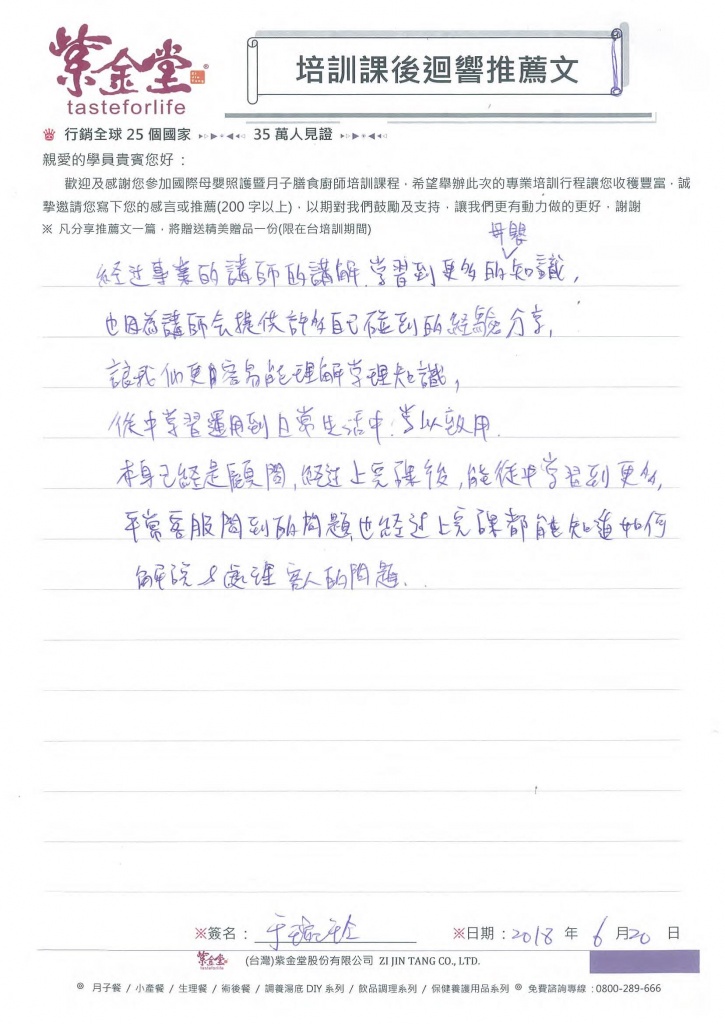 紫金堂®
tasteforlife
培訓課後迴響推薦文
行銷全球 25 個國家 35 萬人見證
親愛的學員貴賓您好：
歡迎及感謝您參加國際母嬰照護暨月子膳食廚師培訓課程，希望舉辦此次的專業培訓行程讓您收穫豐富，誠
摯邀請您寫下您的感言或推薦(200 字以上)，以期對我們鼓勵及支持，讓我們更有動力做的更好，謝謝
※ 凡分享推薦文一篇，將贈送精美贈品一份(限在台培訓期間)
母嬰
經過專業的講師的講解，學習到更多的知識，
也因為講師会提供許多自己碰到的經驗分享，
讓我們更容易能理解學理知識，
從中學習運用到日常生活中，學以致用．
本身已經是顧問，經過上完課後，能從中學習到更多，
平常客服問到的問題，也經過上完課都能知道如何
解說&處理客人的問題．
※簽名：
※日期：2018 年 6 月 20 日
紫金堂
tasteforlife
(台灣)紫金堂股份有限公司 ZI JIN TANG CO., LTD.
◎ 月子餐 / 小產餐 / 生理餐 / 術後餐 / 調養湯底 DIY 系列 / 飲品調理系列 / 保健養護用品系列 ◎ 免費諮詢專線：0800-289-666